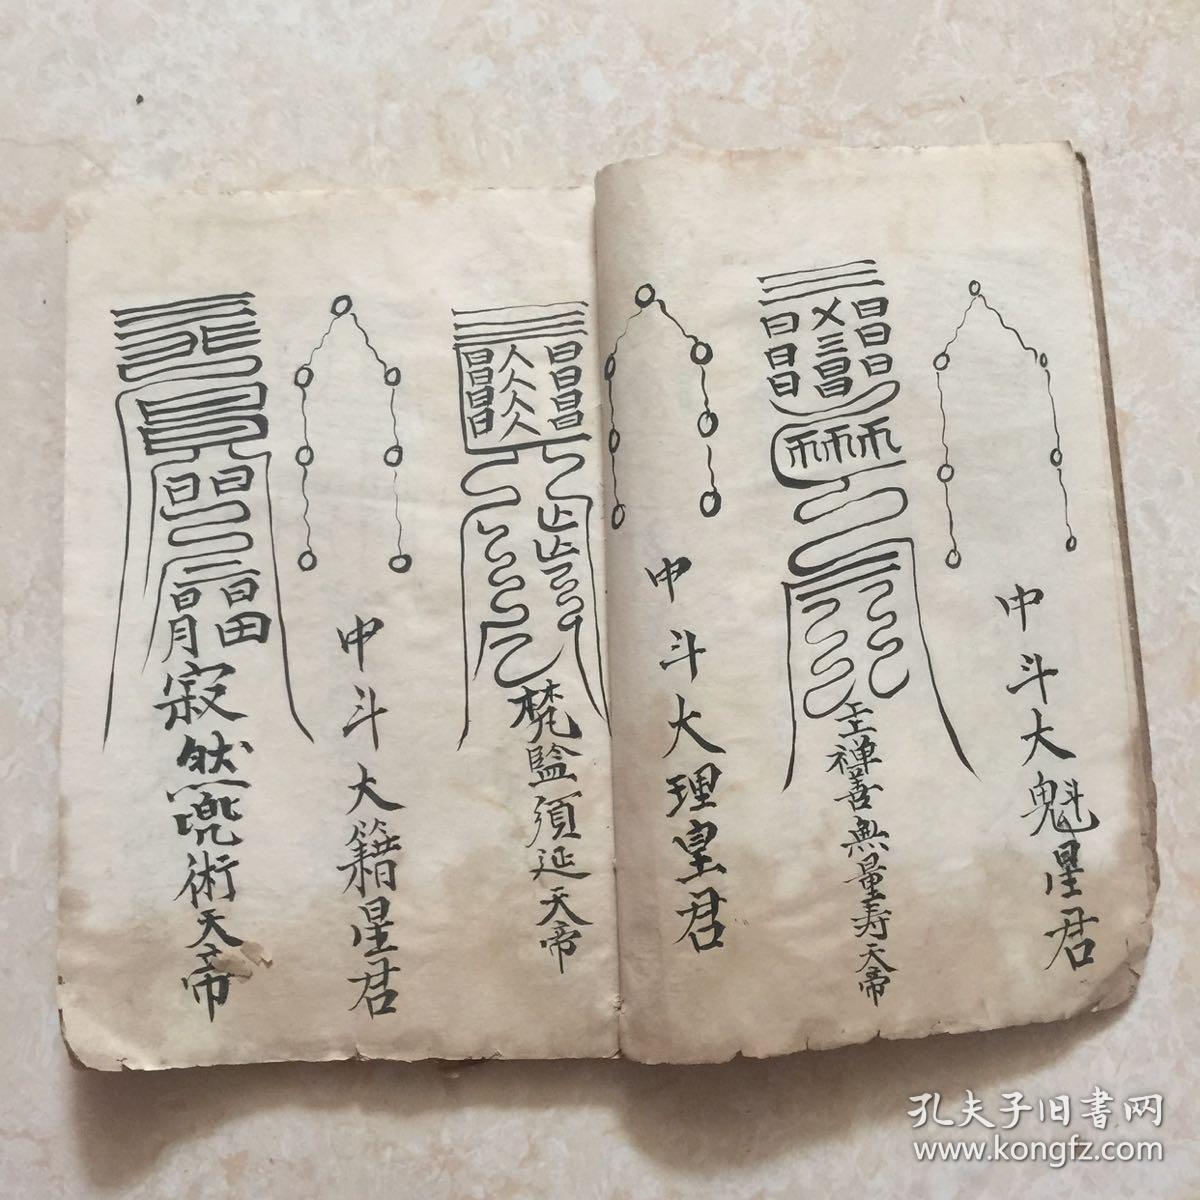 中斗大魁星君
禅善無量寿天帝
中斗大理皇君
梵監須延天帝
中斗大籍星君
寂然兜術天帝
孔夫子旧書网
www.kongfz.com